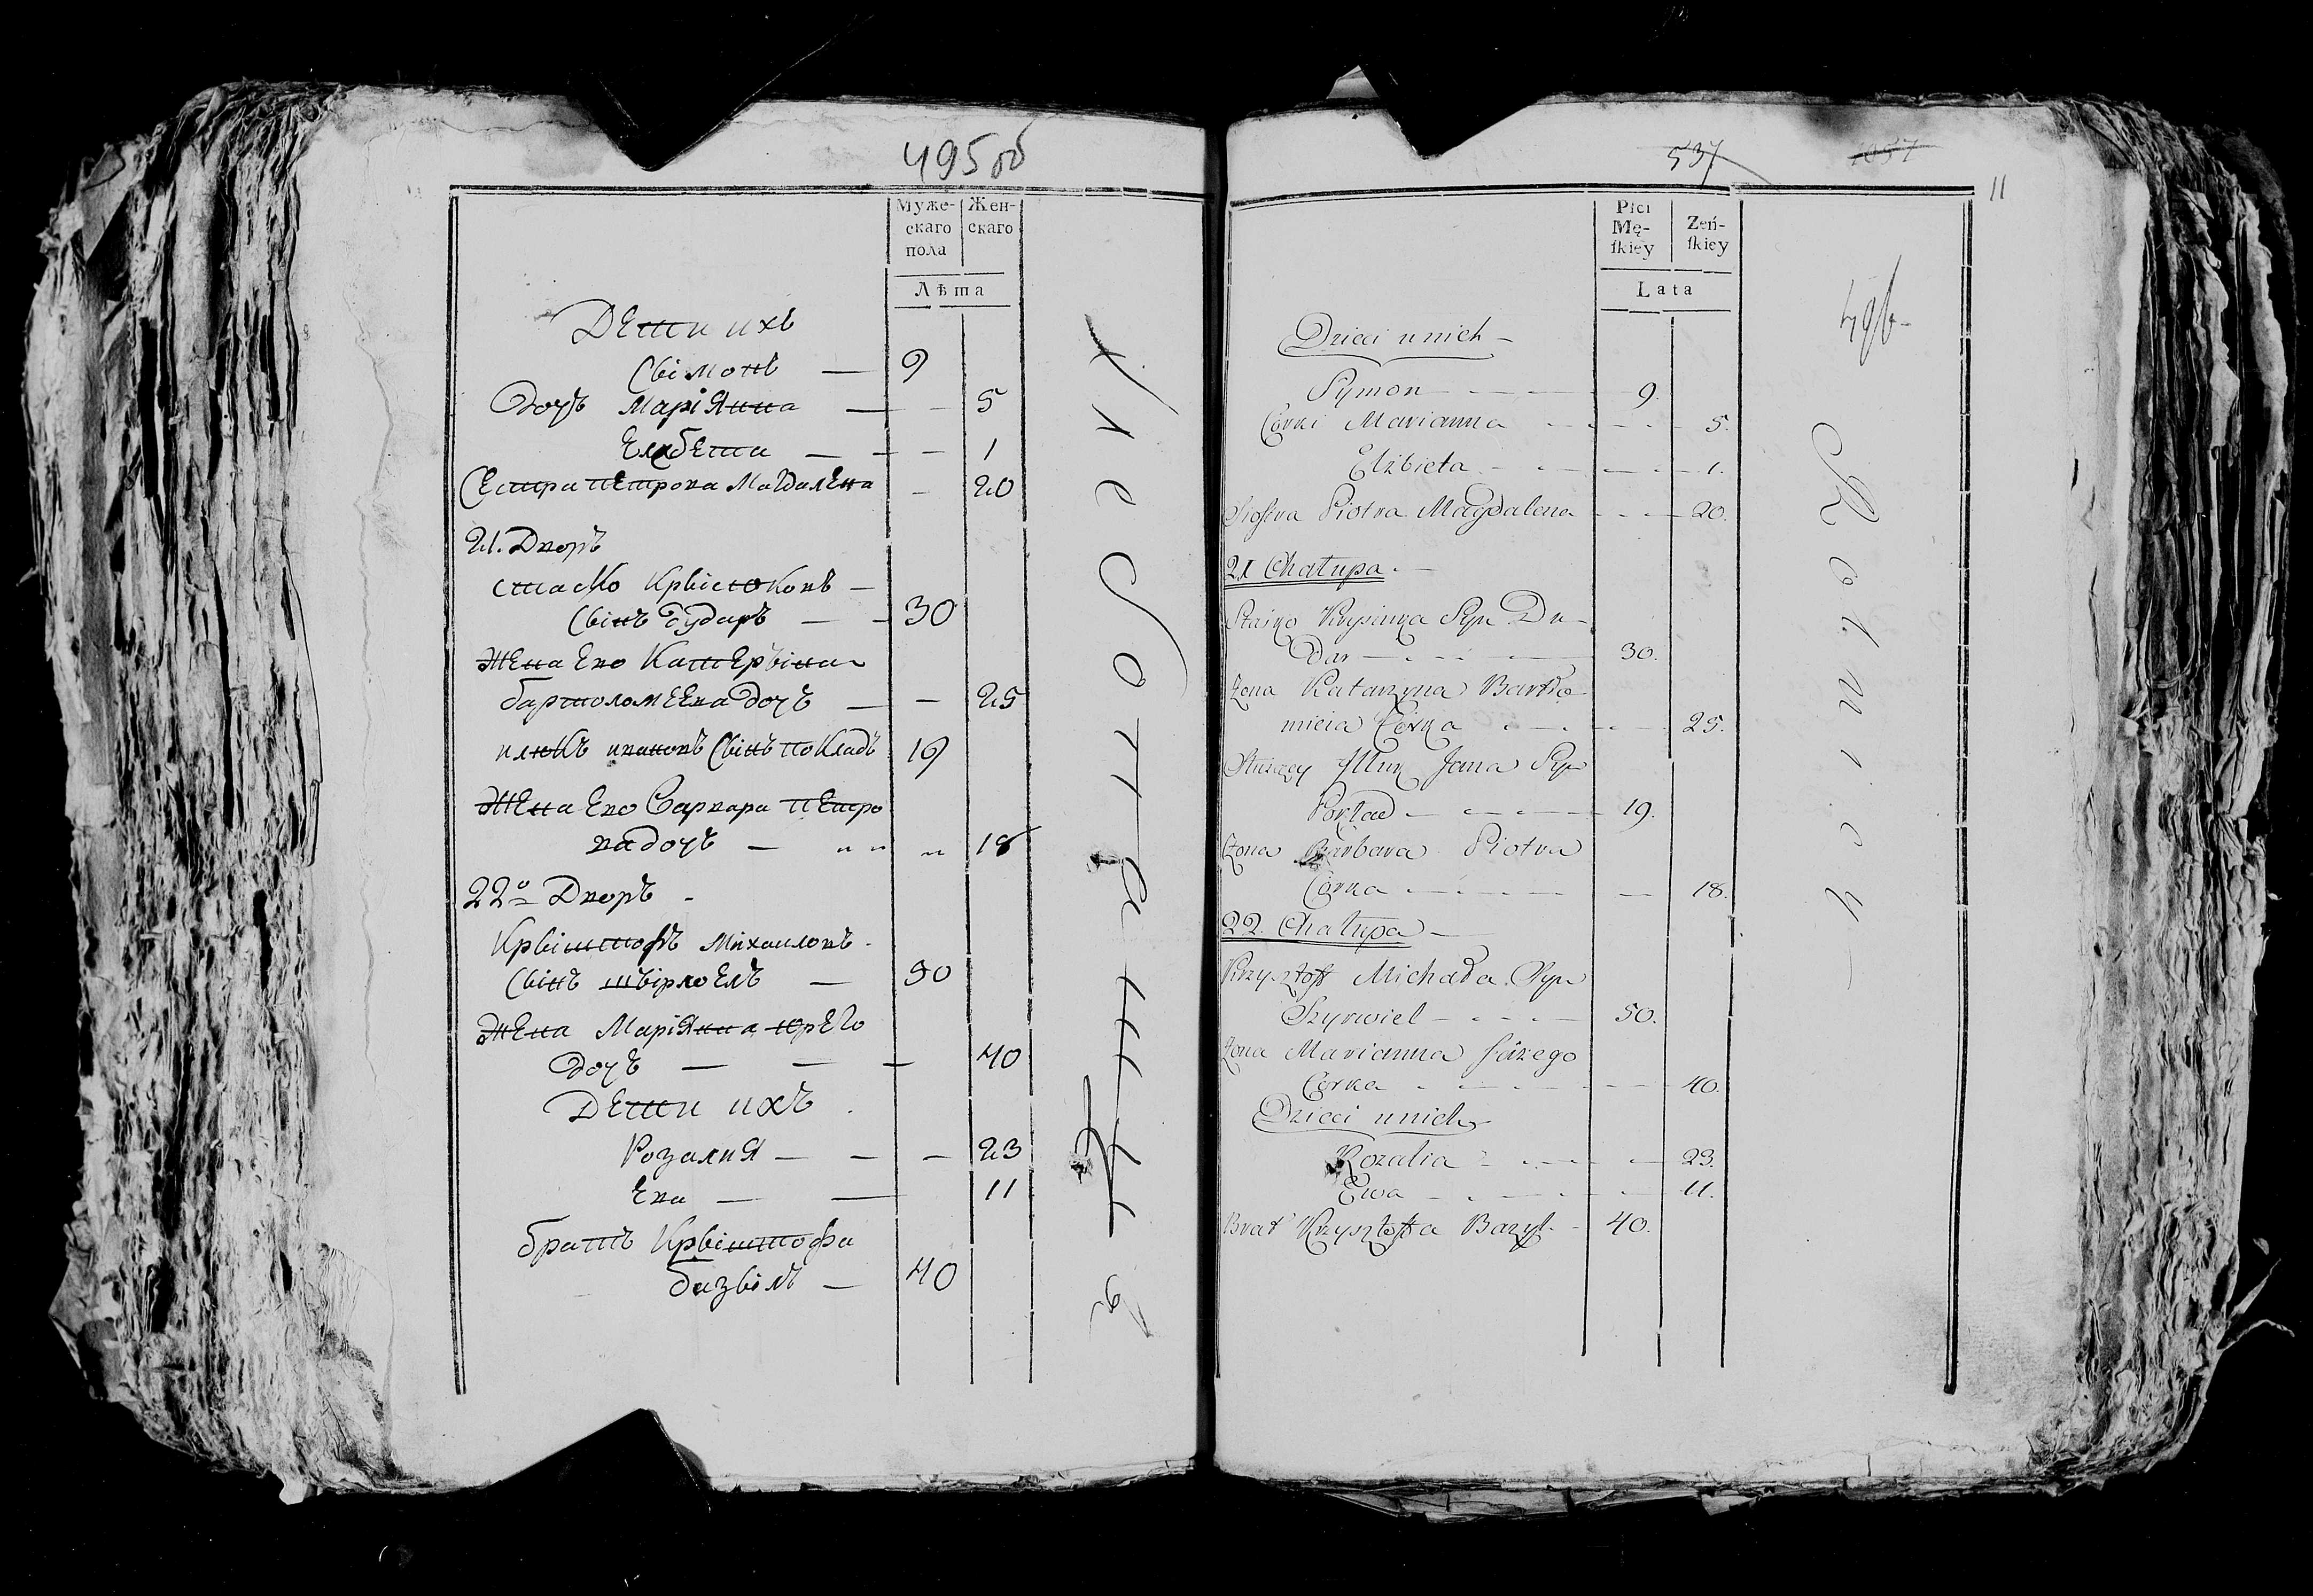 495 об
Муже-
скаго
пола
Жен-
скаго
Лѣта
Дети ихъ
Сымонъ — 9
Дочъ Маріянна — 5
Елжбета — 1
Сестра петрова Магдалена — 20
21. Дворъ
стаско
Сынъ Дударъ — 30
Жена Ево Катерына
бартоломеева дочъ — 25
ивановъ Сынъ покладъ 19
Жена Ево Варвара петро
ва дочъ — 18
22º Дворъ
Крыштофъ Михаиловъ
Сынъ шырвоелъ — 50
Жена Маріянна юрего
Дочъ — 40
Дети ихъ
Розалия — 23
Ева — 11
братъ Крыштофа
базылъ — 40
537
1057
11
496
Płci
Mę-
ſkiey
Zeń-
ſkiey
Lata
Dzieci u nich
Symon 9.
Corki Marianna 5.
Elżbieta 1.
Siostra Piotra Magdalena 20.
21 Chałupa.
Stasko Syn Du-
Dar 30.
Zona Katarzyna Bartło-
mieia Corka 25.
Służący Jana Syn
Pokład 19.
Zona Barbara Piotra
Corka 18.
22. Chałupa
Krzysztoff Michała Syn
Szyrwiel 50.
Zona Marianna Jurego
Corka 40.
Dzieci u nich
Rozalia 23.
Ewa 11.
Brat Krzysztoffa Bazyl. 40.
Rotmicy